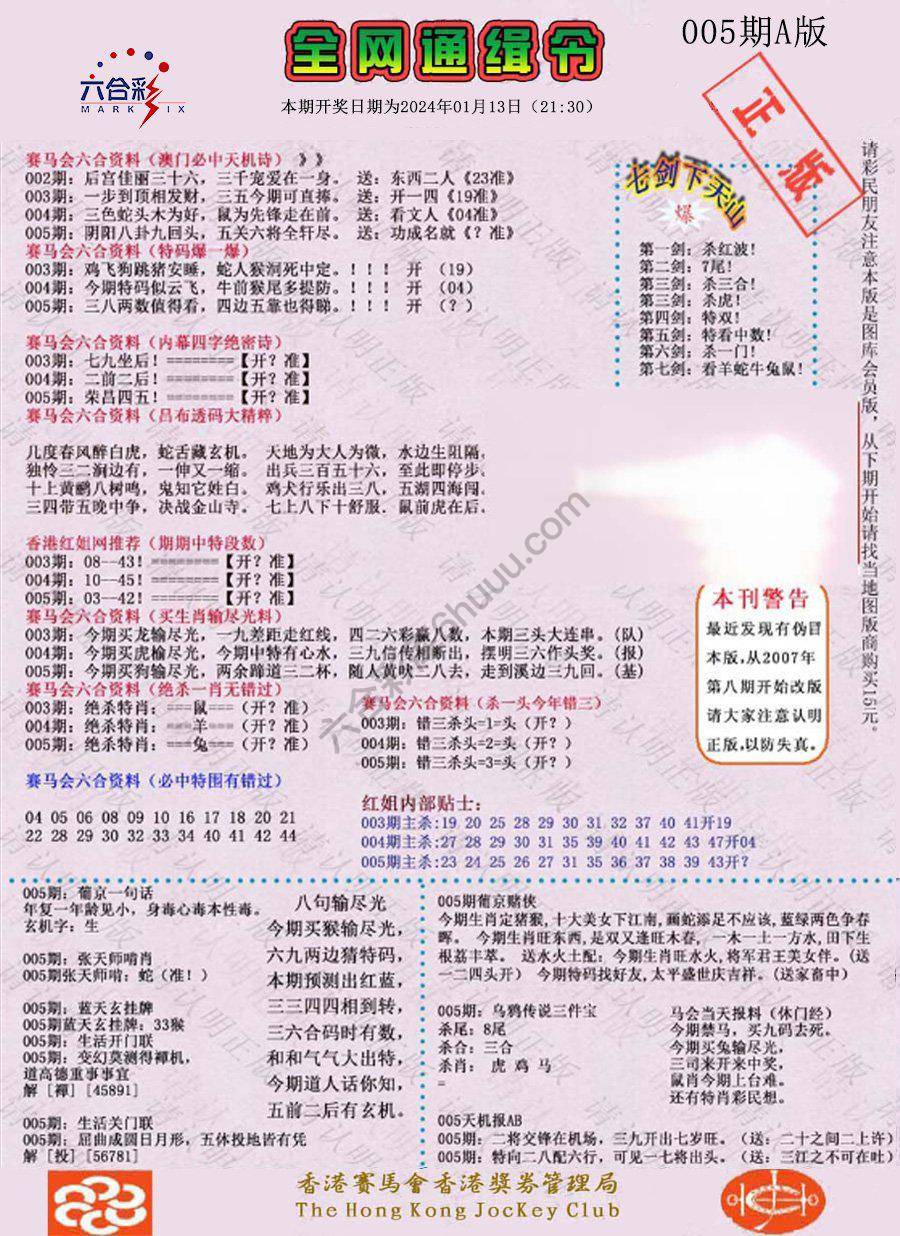 全网通缉令
005期A版
六合彩
MARK SIX
本期开奖日期为2024年01月13日（21:30）
正版
赛马会六合资料（澳门必中天机诗）》》
002期：后宫佳丽三十六，三千宠爱在一身。 送：东西二人《23准》
003期：一步到顶相发财，三五今期可直捧。 送：开一四《19准》
004期：三色蛇头木为好，鼠为先锋走在前。 送：看文人《04准》
005期：阴阳八卦九回头，五关六将全轩尽。 送：功成名就《？准》
赛马会六合资料（特码爆一爆）
003期：鸡飞狗跳猪安睡，蛇人猴洞死中定。！！！ 开 （19）
004期：今期特码似云飞，牛前猴尾多提防。！！！ 开 （04）
005期：三八两数值得看，四边五靠也得睇。！！！ 开 （？）
赛马会六合资料（内幕四字绝密诗）
003期：七九坐后！========【开？准】
004期：二前二后！========【开？准】
005期：荣昌四五！========【开？准】
赛马会六合资料（吕布透码大精粹）
几度春风醉白虎，蛇舌藏玄机。 天地为大人为微，水边生阻隔。
独怜三二涧边有，一伸又一缩。 出兵三百五十六，至此即停步。
十上黄鹂八树鸣，鬼知它姓白。 鸡犬行乐出三八，五湖四海闯。
三四带五晚中争，决战金山寺。 七上八下十舒服．鼠前虎在后．
七剑下天山
爆
第一剑：杀红波！
第二剑：7尾！
第三剑：杀三合！
第三剑：杀虎！
第四剑：特双！
第五剑：特看中数！
第六剑：杀一门！
第七剑：看羊蛇牛兔鼠！
请彩民朋友注意本版是图库会员版，从下期开始请找当地图版商购买15元。
香港红姐网推荐（期期中特段数）
003期：08--43！========【开？准】
004期：10--45！========【开？准】
005期：03--42！========【开？准】
赛马会六合资料（买生肖输尽光料）
003期：今期买龙输尽光，一九差距走红线，四二六彩赢八数，本期三头大连串。（队）
004期：今期买虎榆尽光，今期中特有心水，三九信传相断出，摆明三六作头奖。（报）
005期：今期买狗输尽光，两余蹄道三二杯，随人黄吠二八去，走到溪边三九回。（基）
赛马会六合资料（绝杀一肖无错过）
003期：绝杀特肖：===鼠===（开？准）
004期：绝杀特肖：===羊===（开？准）
005期：绝杀特肖：===兔===（开？准）
赛马会六合资料（杀一头今年错三）
003期：错三杀头=1=头（开？）
004期：错三杀头=2=头（开？）
005期：错三杀头=3=头（开？）
本刊警告
最近发现有伪冒
本版，从2007年
第八期开始改版
请大家注意认明
正版，以防失真。
赛马会六合资料（必中特围有错过）
04 05 06 08 09 10 16 17 18 20 21
22 28 29 30 32 33 34 40 41 42 44
红姐内部贴士：
003期主杀:19 20 25 28 29 30 31 32 37 40 41开19
004期主杀:27 28 29 30 31 35 39 40 41 42 43 47开04
005期主杀:23 24 25 26 27 31 35 36 37 38 39 43开？
005期：葡京一句话
年复一年龄见小，身毒心毒本性毒。
玄机字：生
005期：张天师啃肖
005期张天师啃：蛇（准！）
005期：蓝天玄挂牌
005期蓝天玄挂牌：33猴
005期：生活开门联
005期：变幻莫测得禪机，
道高德重事事宜
解［禪］[45891]
005期：生活关门联
005期：屈曲成圆日月形，五体投地皆有凭
解［投］[56781]
八句输尽光
今期买猴输尽光，
六九两边猜特码，
本期预测出红蓝，
三三四四相到转，
三六合码时有数，
和和气气大出特，
今期道人话你知，
五前二后有玄机。
005期葡京赌侠
今期生肖定猪猴，十大美女下江南，画蛇添足不应该，蓝绿两色争春
晖。 今期生肖旺东西，是双又逢旺木春， 一木一上一方水，田下生
根荔丰萃。 送水火土配：今期生肖旺水火，将军君王美女伴。（送
一二四头开） 今期特码找好友，太平盛世庆吉祥。（送家畜中）
005期：乌鸦传说三件宝
杀尾：8尾
杀合：三合
杀肖： 虎 鸡 马
=
马会当天报料（休门经）
今期禁马，买九码去死。
今期买兔输尽光，
三司来开来中奖，
鼠肖今期上台难。
还有特肖彩民想。
005天机报AB
005期：二将交锋在机场，三九开出七岁旺。（送：二十之间二上许）
005期：特向二八配六行，可见一七将出头。（送：三江之不可在吐）
香港賽馬會香港獎券管理局
The Hong Kong JocKey Club